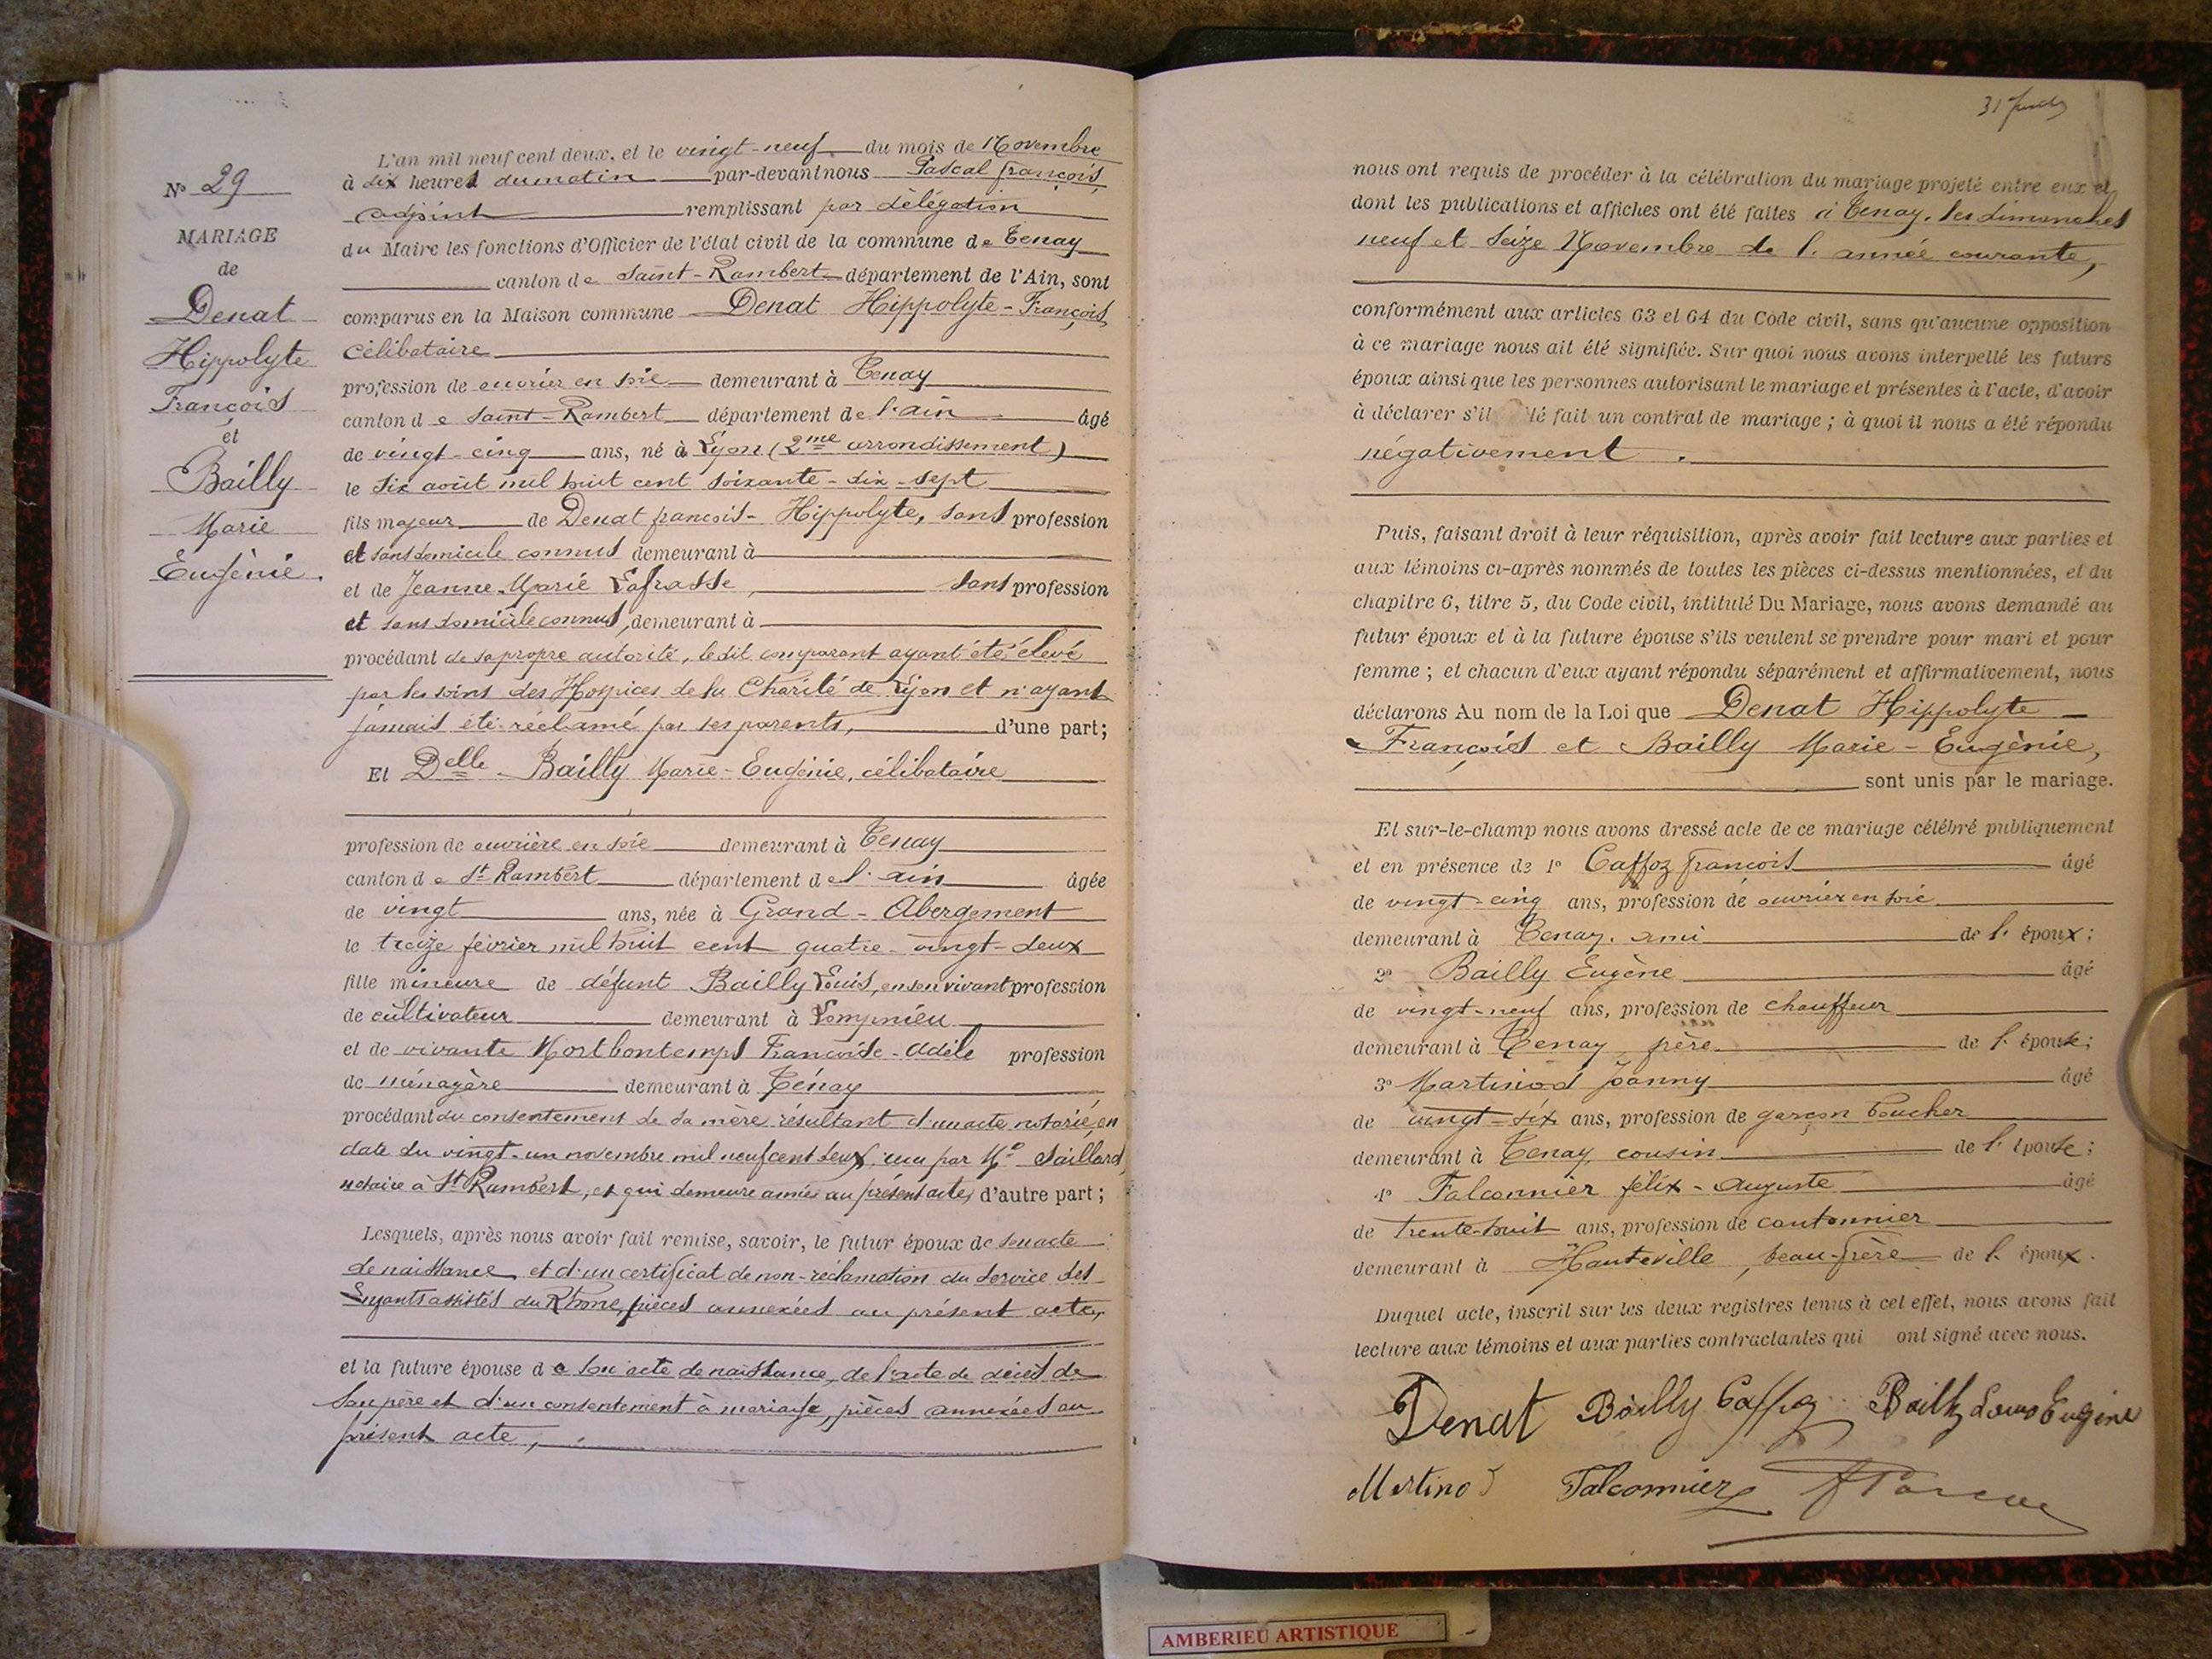 N° 29
MARIAGE
de
Denat
Hippolyte
François
et
Bailly
Marie
Eugénie.
L'an mil neuf cent deux, et le vingt-neuf du mois de Novembre
à dix heures du matin par-devant nous Pascal françois,
adjoint remplissant par délégation
du Maire les fonctions d'Officier de l'état civil de la commune de Tenay
canton de Saint-Rambert département de l'Ain, sont
comparus en la Maison commune Denat Hippolyte-François,
célibataire
profession de ouvrier en soie demeurant à Tenay
canton de Saint-Rambert département de l'ain âgé
de vingt-cinq ans, né à Lyon (2me arrondissement)
le six août mil huit cent soixante-dix-sept
fils majeur de Denat françois-Hippolyte, sans profession
et sans domicile connus demeurant à
et de Jeanne-Marie Lafrasse, sans profession
et sans domicile connus, demeurant à
procédant de sa propre autorité, le dit comparant ayant été élevé
par les soins des Hospices de la Charité de Lyon et n'ayant
jamais été réclamé par ses parents, d'une part;
Et Delle Bailly Marie-Eugénie, célibataire
profession de ouvrière en soie demeurant à Tenay
canton de St Rambert département de l'ain âgée
de vingt ans, née à Grand-Abergement
le treize février mil huit cent quatre-vingt-deux
fille mineure de défunt Bailly Louis, en son vivant profession
de cultivateur demeurant à Lompnieu
et de vivante Mortbontemps Françoise-Adèle profession
de ménagère demeurant à Ténay
procédant du consentement de sa mère résultant d'un acte notarié, en
date du vingt-un novembre mil neuf cent deux, reçu par Me Saillard,
notaire à St Rambert, et qui demeure annexé au présent acte, d'autre part;
Lesquels, après nous avoir fait remise, savoir, le futur époux de son acte
de naissance et d'un certificat de non-réclamation du service des
Enfants assistés du Rhône, pièces annexées au présent acte,
et la future épouse de son acte de naissance, de l'acte de décès de
son père et d'un consentement à mariage, pièces annexées au
présent acte,
nous ont requis de procéder à la célébration du mariage projeté entre eux et
dont les publications et affiches ont été faites à Tenay, les dimanches
neuf et seize Novembre de l'année courante,
conformément aux articles 63 et 64 du Code civil, sans qu'aucune opposition
à ce mariage nous ait été signifiée. Sur quoi nous avons interpellé les futurs
époux ainsi que les personnes autorisant le mariage et présentes à l'acte, d'avoir
à déclarer s'il té fait un contrat de mariage; à quoi il nous a été répondu
négativement.
Puis, faisant droit à leur réquisition, après avoir fait lecture aux parties et
aux témoins ci-après nommés de toutes les pièces ci-dessus mentionnées, et du
chapitre 6, titre 5, du Code civil, intitulé Du Mariage, nous avons demandé au
futur époux et à la future épouse s'ils veulent se prendre pour mari et pour
femme; et chacun d'eux ayant répondu séparément et affirmativement, nous
déclarons Au nom de la Loi que Denat Hippolyte-
François et Bailly Marie-Eugénie,
sont unis par le mariage.
Et sur-le-champ nous avons dressé acte de ce mariage célébré publiquement
et en présence de 1° Caffoz françois âgé
de vingt-cinq ans, profession de ouvrier en soie
demeurant à Tenay, ami de l'époux;
2° Bailly Eugène âgé
de vingt-neuf ans, profession de chauffeur
demeurant à Tenay frère de l'épouse;
3° Martinod Joanny âgé
de vingt-six ans, profession de garçon boucher
demeurant à Tenay cousin de l'épouse;
4° Falconnier félix-Auguste âgé
de trente-huit ans, profession de cantonnier
demeurant à Hauteville, beau-frère de l'époux.
Duquel acte, inscrit sur les deux registres tenus à cet effet, nous avons fait
lecture aux témoins et aux parties contractantes qui ont signé avec nous.
Denat Bailly Caffoz Bailly Louis Eugène
Martinod Falconnier
AMBERIEU ARTISTIQUE